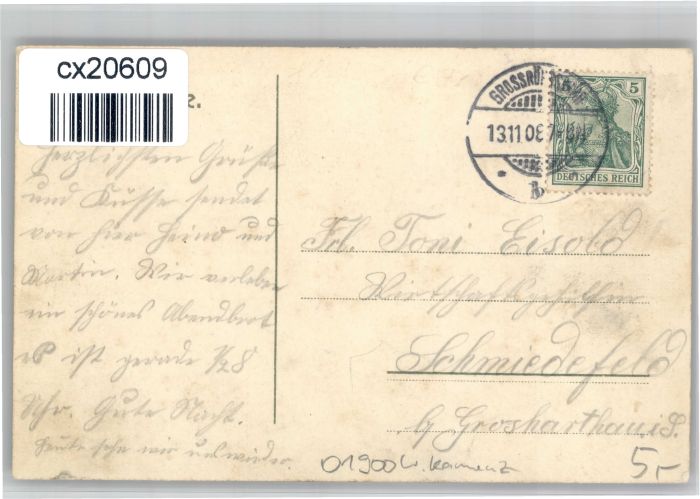 cx20609
z.
Herzlichsten Grüße
und Küsse sendet
von hier Heino und
Martin. Wir verleben
ein schönes Abendbrot
es ist gerade 1/28
Uhr. Gute Nacht.
Heute sehn wir uns wieder.
GROSSRÖHRSDORF
13.11.08
DEUTSCHES REICH
5
Frl. Toni Eisold
Wirtschaftsgehilfin
Schmiedefeld
b/ Großharthau i. S.
01900 b. Kamenz
5,-